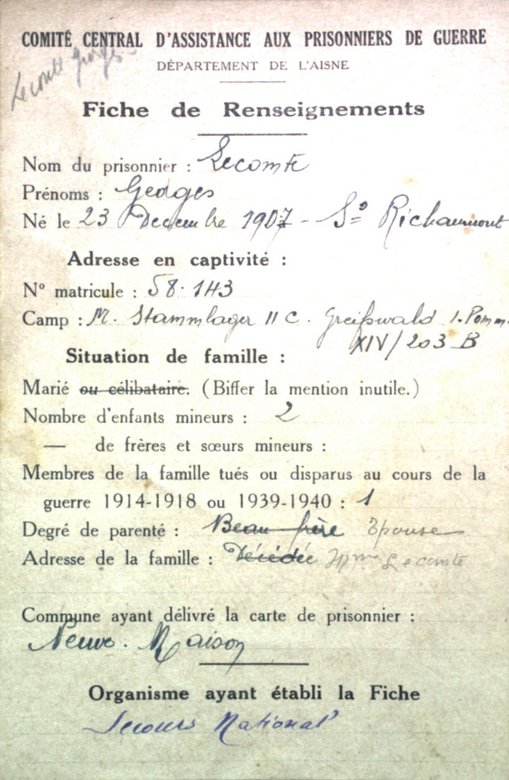 COMITÉ CENTRAL D'ASSISTANCE AUX PRISONNIERS DE GUERRE
DÉPARTEMENT DE L'AISNE
Lecomte Georges
Fiche de Renseignements
Nom du prisonnier : Lecomte
Prénoms : Georges
Né le 23 Decembre 1907 - Richaumont
Adresse en captivité :
N° matricule : 58.143
Camp : M. Stammlager II C. Greifswald 1. Pomm.
XIV/203 B
Situation de famille :
Marié ou célibataire. (Biffer la mention inutile.)
Nombre d'enfants mineurs : 2
— de frères et sœurs mineurs :
Membres de la famille tués ou disparus au cours de la
guerre 1914-1918 ou 1939-1940 : 1
Degré de parenté : Beau frère Epouse
Adresse de la famille : Décédée Mme Lecomte
Commune ayant délivré la carte de prisonnier :
Neuve-Maison
Organisme ayant établi la Fiche
Secours National